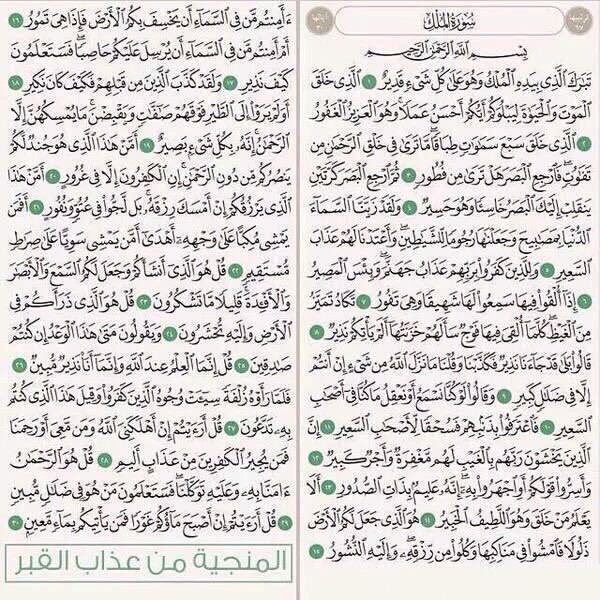 سُورَةُ المُلْكِ
بِسْمِ ٱللَّهِ ٱلرَّحْمَٰنِ ٱلرَّحِيمِ
تَبَٰرَكَ ٱلَّذِى بِيَدِهِ ٱلْمُلْكُ وَهُوَ عَلَىٰ كُلِّ شَىْءٍ قَدِيرٌ ١ ٱلَّذِى خَلَقَ
ٱلْمَوْتَ وَٱلْحَيَوٰةَ لِيَبْلُوَكُمْ أَيُّكُمْ أَحْسَنُ عَمَلًا وَهُوَ ٱلْعَزِيزُ ٱلْغَفُورُ
٢ ٱلَّذِى خَلَقَ سَبْعَ سَمَٰوَٰتٍ طِبَاقًا مَّا تَرَىٰ فِى خَلْقِ ٱلرَّحْمَٰنِ مِن
تَفَٰوُتٍ فَٱرْجِعِ ٱلْبَصَرَ هَلْ تَرَىٰ مِن فُطُورٍ ٣ ثُمَّ ٱرْجِعِ ٱلْبَصَرَ كَرَّتَيْنِ
يَنقَلِبْ إِلَيْكَ ٱلْبَصَرُ خَاسِئًا وَهُوَ حَسِيرٌ ٤ وَلَقَدْ زَيَّنَّا ٱلسَّمَآءَ
ٱلدُّنْيَا بِمَصَٰبِيحَ وَجَعَلْنَٰهَا رُجُومًا لِّلشَّيَٰطِينِ وَأَعْتَدْنَا لَهُمْ عَذَابَ
ٱلسَّعِيرِ ٥ وَلِلَّذِينَ كَفَرُوا۟ بِرَبِّهِمْ عَذَابُ جَهَنَّمَ وَبِئْسَ ٱلْمَصِيرُ
٦ إِذَآ أُلْقُوا۟ فِيهَا سَمِعُوا۟ لَهَا شَهِيقًا وَهِىَ تَفُورُ ٧ تَكَادُ تَمَيَّزُ
مِنَ ٱلْغَيْظِ كُلَّمَآ أُلْقِىَ فِيهَا فَوْجٌ سَأَلَهُمْ خَزَنَتُهَآ أَلَمْ يَأْتِكُمْ نَذِيرٌ ٨
قَالُوا۟ بَلَىٰ قَدْ جَآءَنَا نَذِيرٌ فَكَذَّبْنَا وَقُلْنَا مَا نَزَّلَ ٱللَّهُ مِن شَىْءٍ إِنْ أَنتُمْ
إِلَّا فِى ضَلَٰلٍ كَبِيرٍ ٩ وَقَالُوا۟ لَوْ كُنَّا نَسْمَعُ أَوْ نَعْقِلُ مَا كُنَّا فِىٓ أَصْحَٰبِ
ٱلسَّعِيرِ ١٠ فَٱعْتَرَفُوا۟ بِذَنۢبِهِمْ فَسُحْقًا لِّأَصْحَٰبِ ٱلسَّعِيرِ ١١ إِنَّ
ٱلَّذِينَ يَخْشَوْنَ رَبَّهُم بِٱلْغَيْبِ لَهُم مَّغْفِرَةٌ وَأَجْرٌ كَبِيرٌ ١٢
وَأَسِرُّوا۟ قَوْلَكُمْ أَوِ ٱجْهَرُوا۟ بِهِۦٓ إِنَّهُۥ عَلِيمٌۢ بِذَاتِ ٱلصُّدُورِ ١٣ أَلَا
يَعْلَمُ مَنْ خَلَقَ وَهُوَ ٱللَّطِيفُ ٱلْخَبِيرُ ١٤ هُوَ ٱلَّذِى جَعَلَ لَكُمُ ٱلْأَرْضَ
ذَلُولًا فَٱمْشُوا۟ فِى مَنَاكِبِهَا وَكُلُوا۟ مِن رِّزْقِهِۦ وَإِلَيْهِ ٱلنُّشُورُ ١٥
ءَأَمِنتُم مَّن فِى ٱلسَّمَآءِ أَن يَخْسِفَ بِكُمُ ٱلْأَرْضَ فَإِذَا هِىَ تَمُورُ ١٦
أَمْ أَمِنتُم مَّن فِى ٱلسَّمَآءِ أَن يُرْسِلَ عَلَيْكُمْ حَاصِبًا فَسَتَعْلَمُونَ
كَيْفَ نَذِيرِ ١٧ وَلَقَدْ كَذَّبَ ٱلَّذِينَ مِن قَبْلِهِمْ فَكَيْفَ كَانَ نَكِيرِ ١٨
أَوَلَمْ يَرَوْا۟ إِلَى ٱلطَّيْرِ فَوْقَهُمْ صَٰٓفَّٰتٍ وَيَقْبِضْنَ مَا يُمْسِكُهُنَّ إِلَّا
ٱلرَّحْمَٰنُ إِنَّهُۥ بِكُلِّ شَىْءٍۭ بَصِيرٌ ١٩ أَمَّنْ هَٰذَا ٱلَّذِى هُوَ جُندٌ لَّكُمْ
يَنصُرُكُم مِّن دُونِ ٱلرَّحْمَٰنِ إِنِ ٱلْكَٰفِرُونَ إِلَّا فِى غُرُورٍ ٢٠ أَمَّنْ هَٰذَا
ٱلَّذِى يَرْزُقُكُمْ إِنْ أَمْسَكَ رِزْقَهُۥ بَل لَّجُّوا۟ فِى عُتُوٍّ وَنُفُورٍ ٢١ أَفَمَن
يَمْشِى مُكِبًّا عَلَىٰ وَجْهِهِۦٓ أَهْدَىٰٓ أَمَّن يَمْشِى سَوِيًّا عَلَىٰ صِرَٰطٍ
مُّسْتَقِيمٍ ٢٢ قُلْ هُوَ ٱلَّذِىٓ أَنشَأَكُمْ وَجَعَلَ لَكُمُ ٱلسَّمْعَ وَٱلْأَبْصَٰرَ
وَٱلْأَفْـِٔدَةَ قَلِيلًا مَّا تَشْكُرُونَ ٢٣ قُلْ هُوَ ٱلَّذِى ذَرَأَكُمْ فِى
ٱلْأَرْضِ وَإِلَيْهِ تُحْشَرُونَ ٢٤ وَيَقُولُونَ مَتَىٰ هَٰذَا ٱلْوَعْدُ إِن كُنتُمْ
صَٰدِقِينَ ٢٥ قُلْ إِنَّمَا ٱلْعِلْمُ عِندَ ٱللَّهِ وَإِنَّمَآ أَنَا۠ نَذِيرٌ مُّبِينٌ ٢٦
فَلَمَّا رَأَوْهُ زُلْفَةً سِيٓـَٔتْ وُجُوهُ ٱلَّذِينَ كَفَرُوا۟ وَقِيلَ هَٰذَا ٱلَّذِى كُنتُم
بِهِۦ تَدَّعُونَ ٢٧ قُلْ أَرَءَيْتُمْ إِنْ أَهْلَكَنِىَ ٱللَّهُ وَمَن مَّعِىَ أَوْ رَحِمَنَا
فَمَن يُجِيرُ ٱلْكَٰفِرِينَ مِنْ عَذَابٍ أَلِيمٍ ٢٨ قُلْ هُوَ ٱلرَّحْمَٰنُ
ءَامَنَّا بِهِۦ وَعَلَيْهِ تَوَكَّلْنَا فَسَتَعْلَمُونَ مَنْ هُوَ فِى ضَلَٰلٍ مُّبِينٍ
٢٩ قُلْ أَرَءَيْتُمْ إِنْ أَصْبَحَ مَآؤُكُمْ غَوْرًا فَمَن يَأْتِيكُم بِمَآءٍ مَّعِينٍۭ ٣٠
المنجية من عذاب القبر